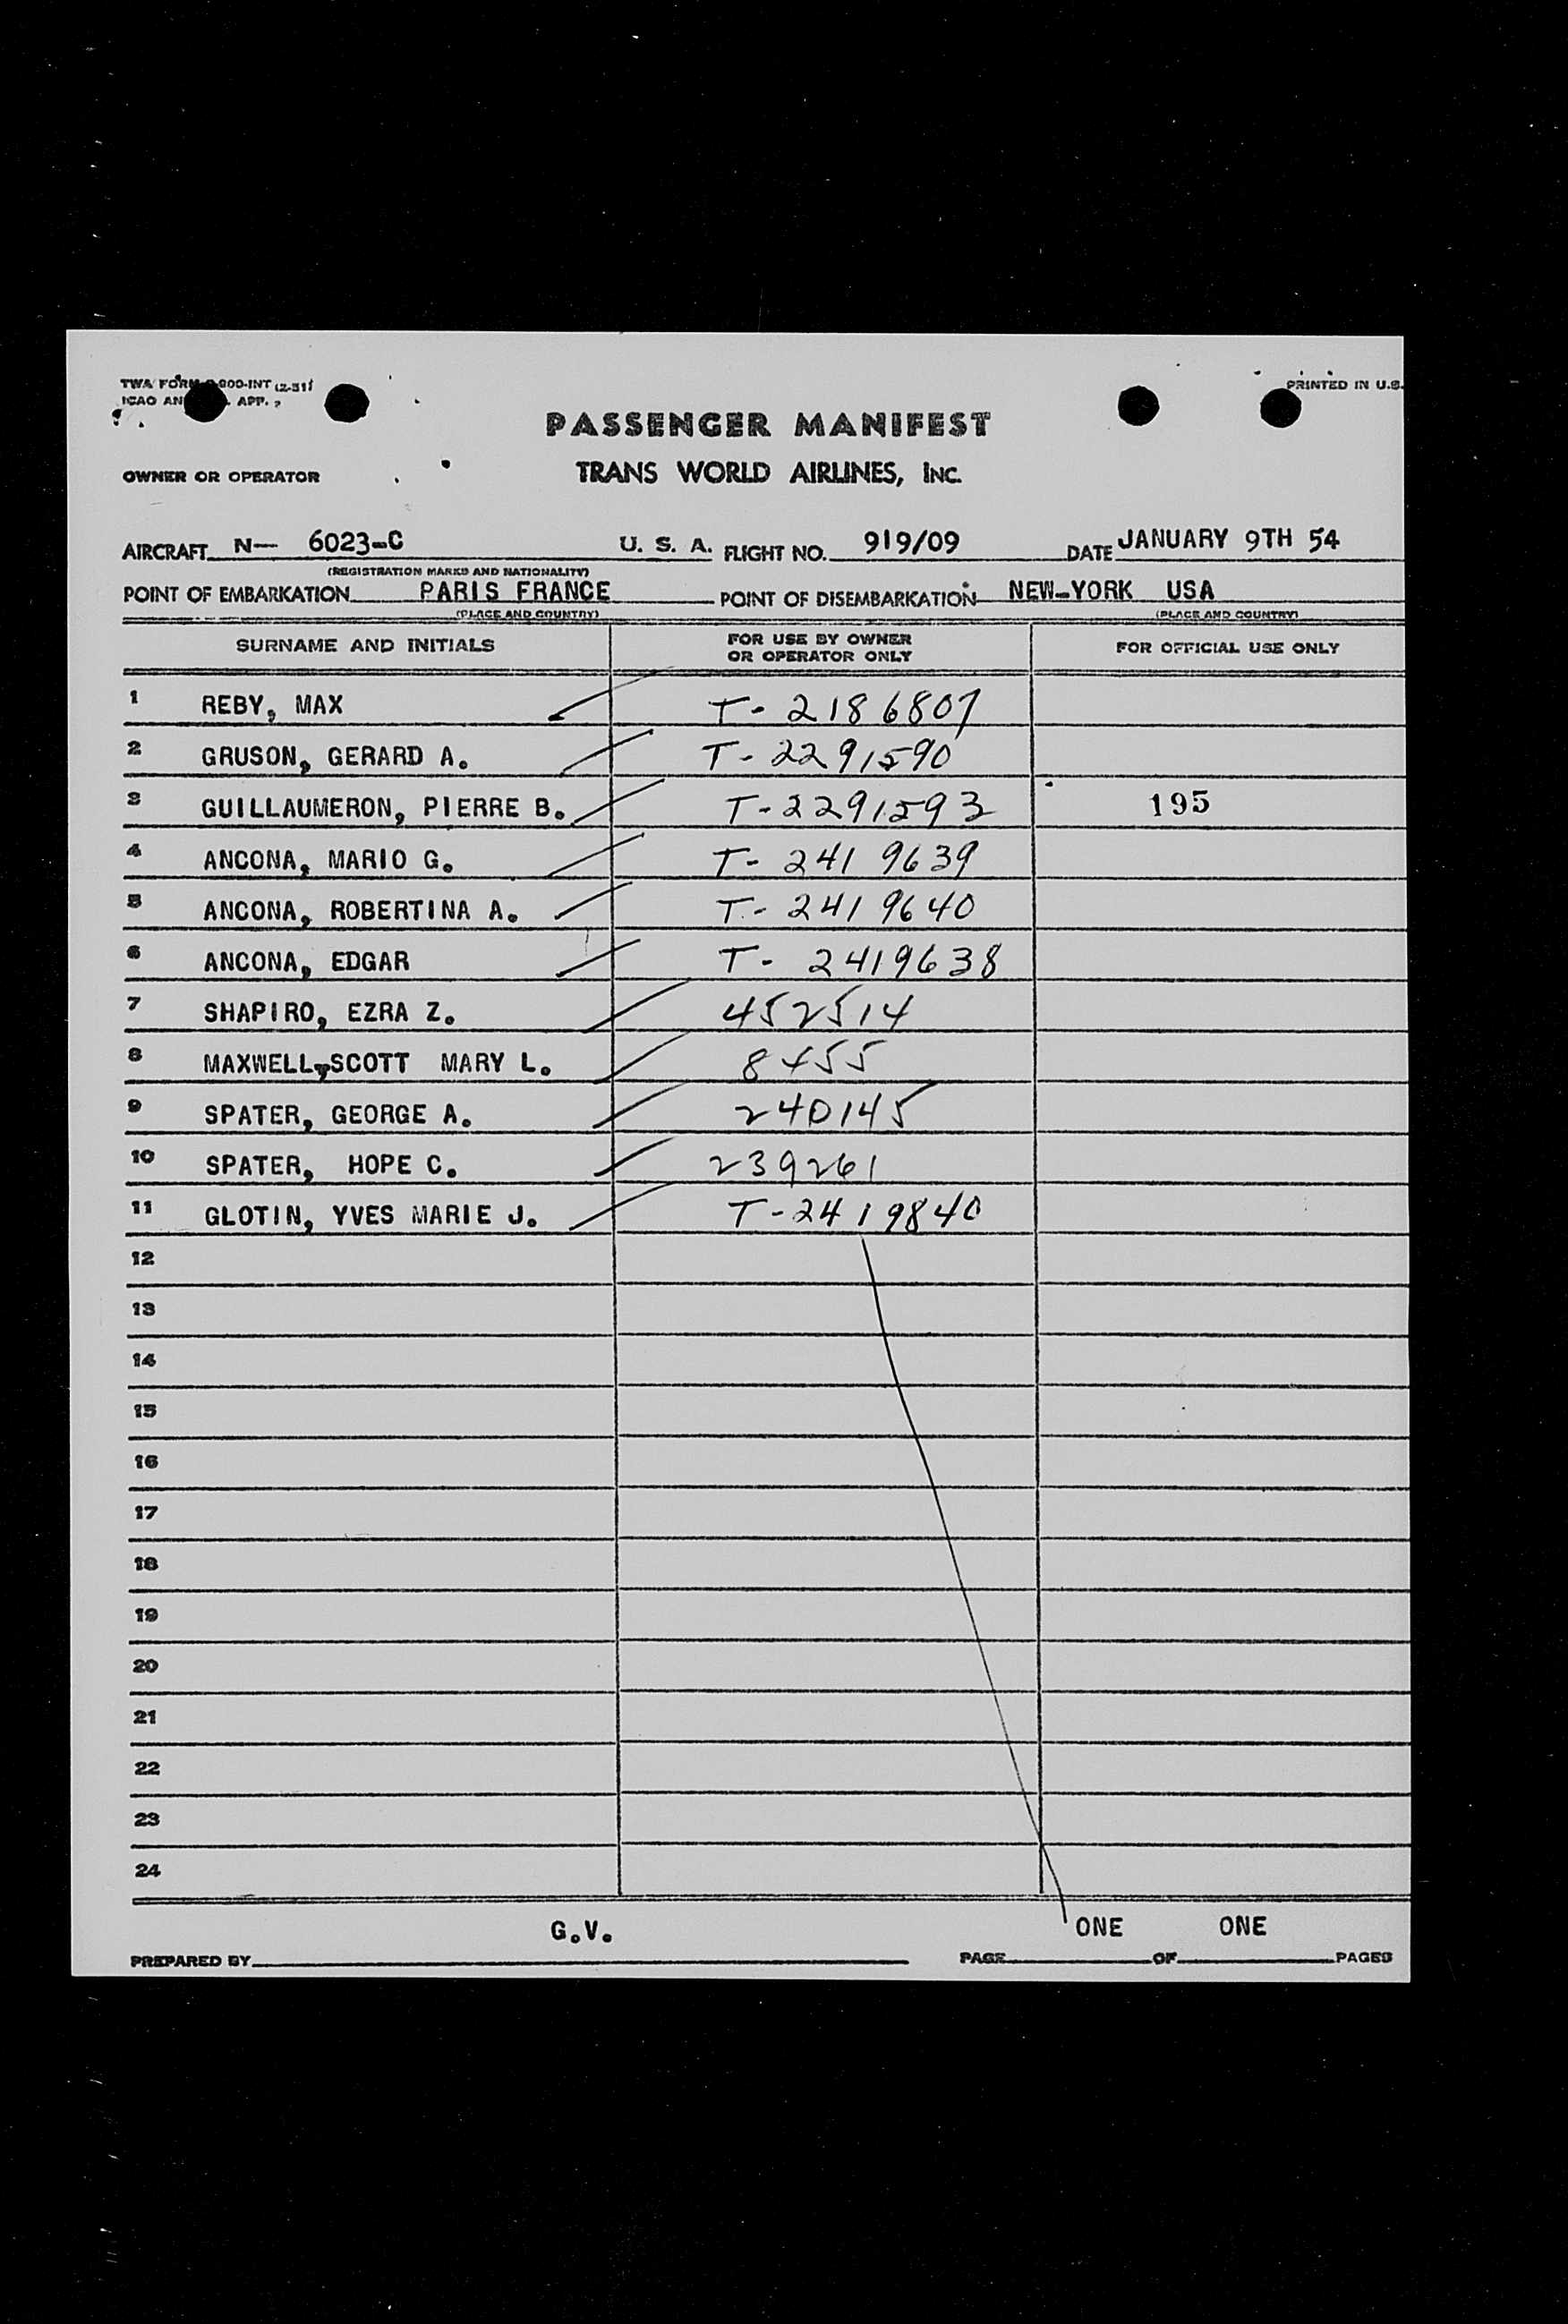 TWA FORM 000-INT (2-51)
PRINTED IN U.S.
ICAO AN APP. 2
PASSENGER MANIFEST
OWNER OR OPERATOR TRANS WORLD AIRLINES, INC.
AIRCRAFT N— 6023-C U. S. A. FLIGHT NO. 919/09 DATE JANUARY 9TH 54
(REGISTRATION MARKS AND NATIONALITY)
POINT OF EMBARKATION PARIS FRANCE POINT OF DISEMBARKATION NEW-YORK USA
(PLACE AND COUNTRY) (PLACE AND COUNTRY)
SURNAME AND INITIALS FOR USE BY OWNER OR OPERATOR ONLY FOR OFFICIAL USE ONLY
1 REBY, MAX T- 2186807
2 GRUSON, GERARD A. T- 2291590
3 GUILLAUMERON, PIERRE B. T-2291593 195
4 ANCONA, MARIO G. T- 2419639
5 ANCONA, ROBERTINA A. T- 2419640
6 ANCONA, EDGAR T- 2419638
7 SHAPIRO, EZRA Z. 452514
8 MAXWELL,SCOTT MARY L. 8455
9 SPATER, GEORGE A. 240145
10 SPATER, HOPE C. 239261
11 GLOTIN, YVES MARIE J. T-2419840
12
13
14
15
16
17
18
19
20
21
22
23
24
G.V. ONE ONE
PREPARED BY PAGE OF PAGES